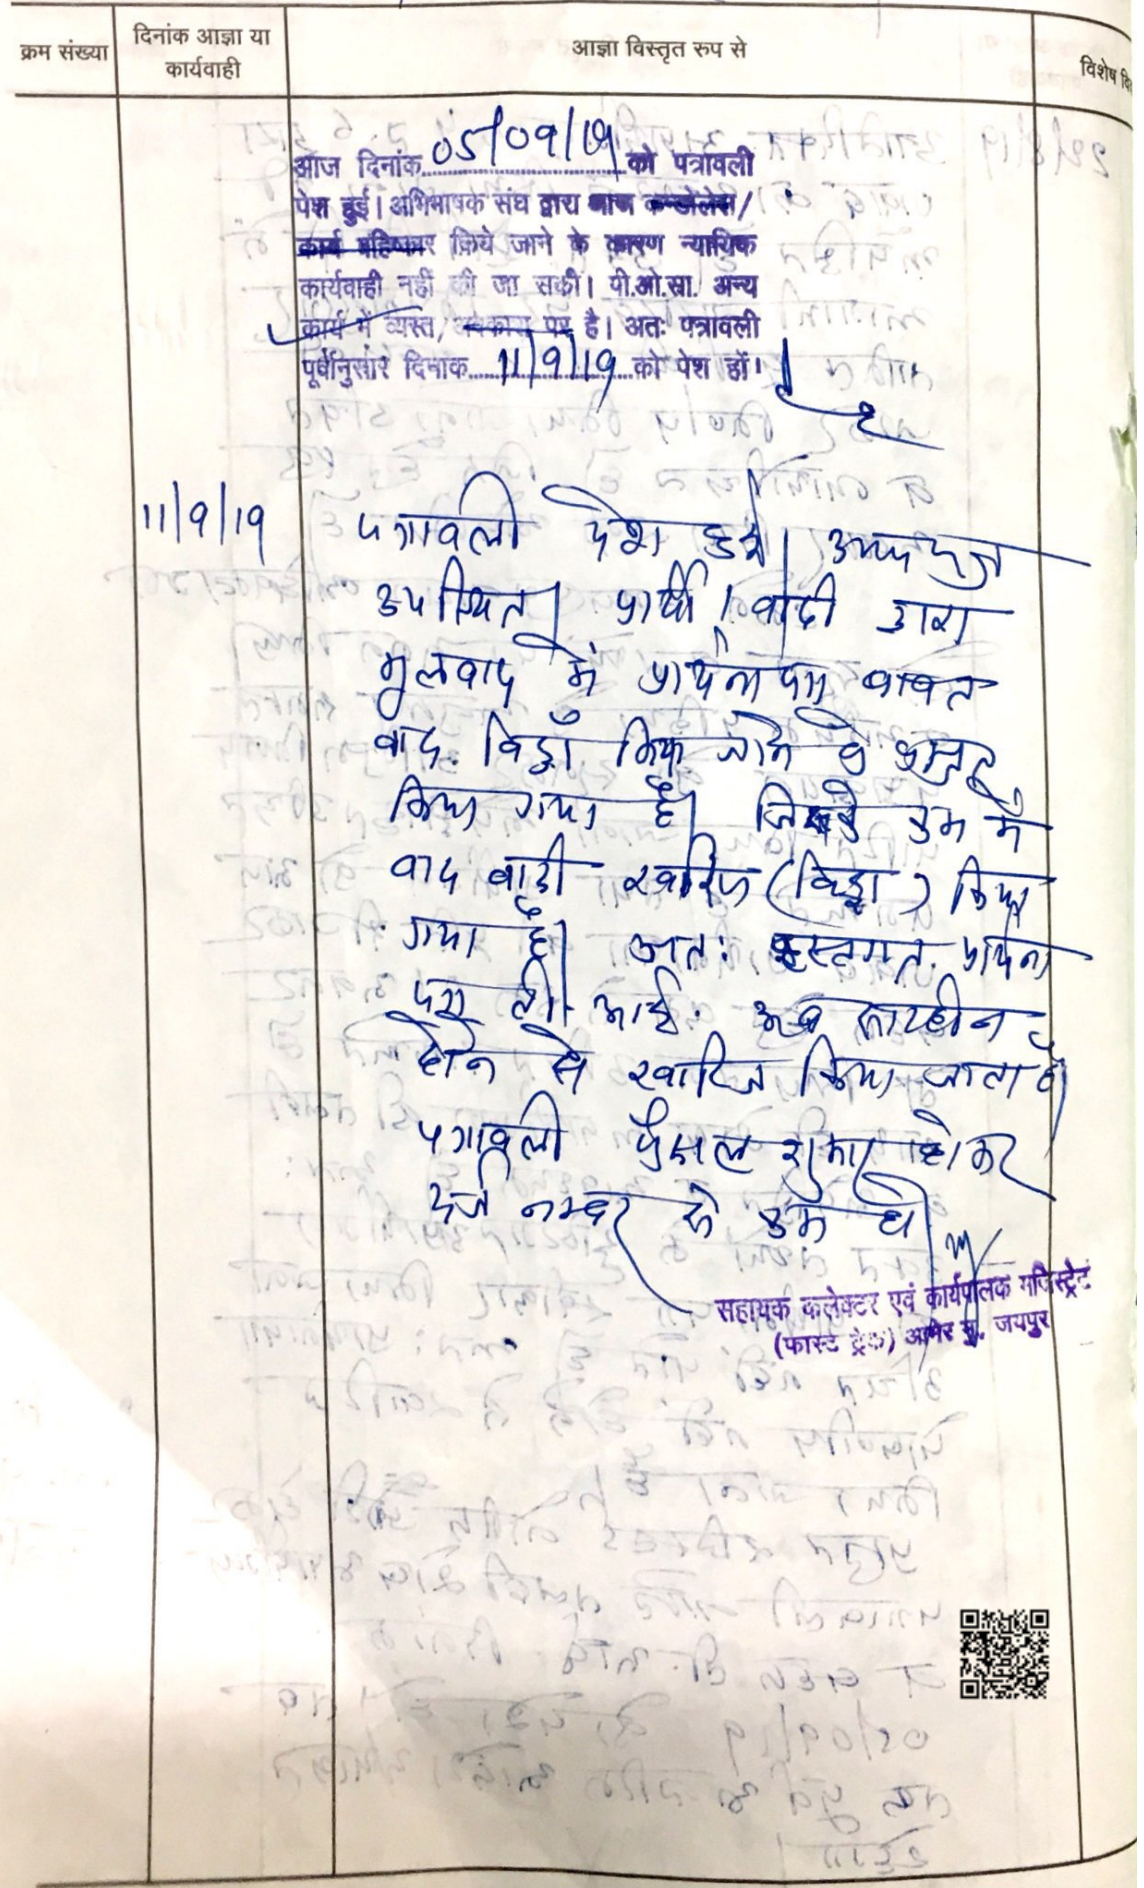 क्रम संख्या
दिनांक आज्ञा या
कार्यवाही
आज्ञा विस्तृत रुप से
विशेष वि
आज दिनांक 05/09/19 को पत्रावली
पेश हुई। अभिभाषक संघ द्वारा आज कन्डोलेंस/
कार्य बहिष्कार किये जाने के कारण न्यायिक
कार्यवाही नहीं की जा सकी। पी.ओ.सा. अन्य
कार्य में व्यस्त, अवकाश पर है। अतः पत्रावली
पूर्वानुसार दिनांक 11/9/19 को पेश हों।
11/9/19
पत्रावली पेश हुई। उभयपक्ष
उपस्थित। प्रार्थी/वादी द्वारा
मूलवाद में प्रार्थनापत्र बाबत
वाद विड्रॉ किए जाने के प्रस्तुत
किया गया है। जिसके क्रम में
वाद वादी खारिज (विड्रा) किया
गया है। अतः हस्तगत प्रार्थना
पत्र टी.आई. अब सारहीन
होने से खारिज किया जाता है।
पत्रावली फैसल शुमार होकर
दर्ज नम्बर से कम हो।
सहायक कलेक्टर एवं कार्यपालक मजिस्ट्रेट
(फास्ट ट्रैक) आमेर मु. जयपुर